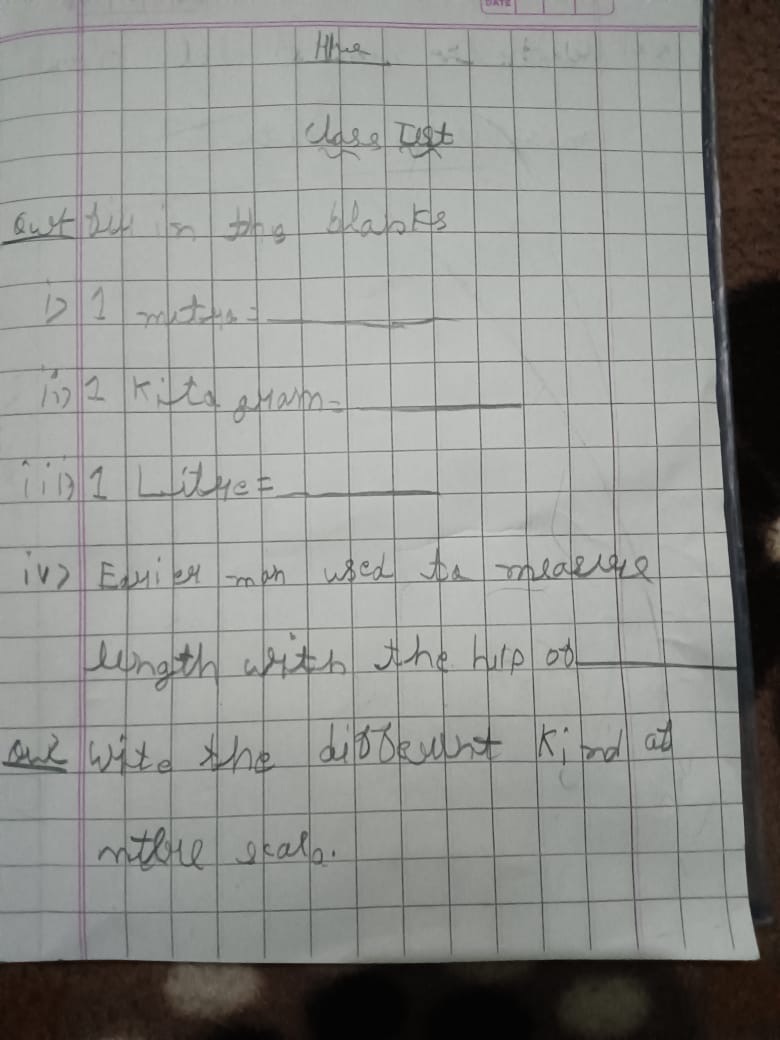 DATE
H.w
Class Test
Que1 fill in the blanks
i) 1 metre = ________
ii) 1 Kilo gram = ________
iii) 1 Litre = ________
iv) Earier man used to measure
length with the help of ________
Que2 Write the different Kind of
metre scale.